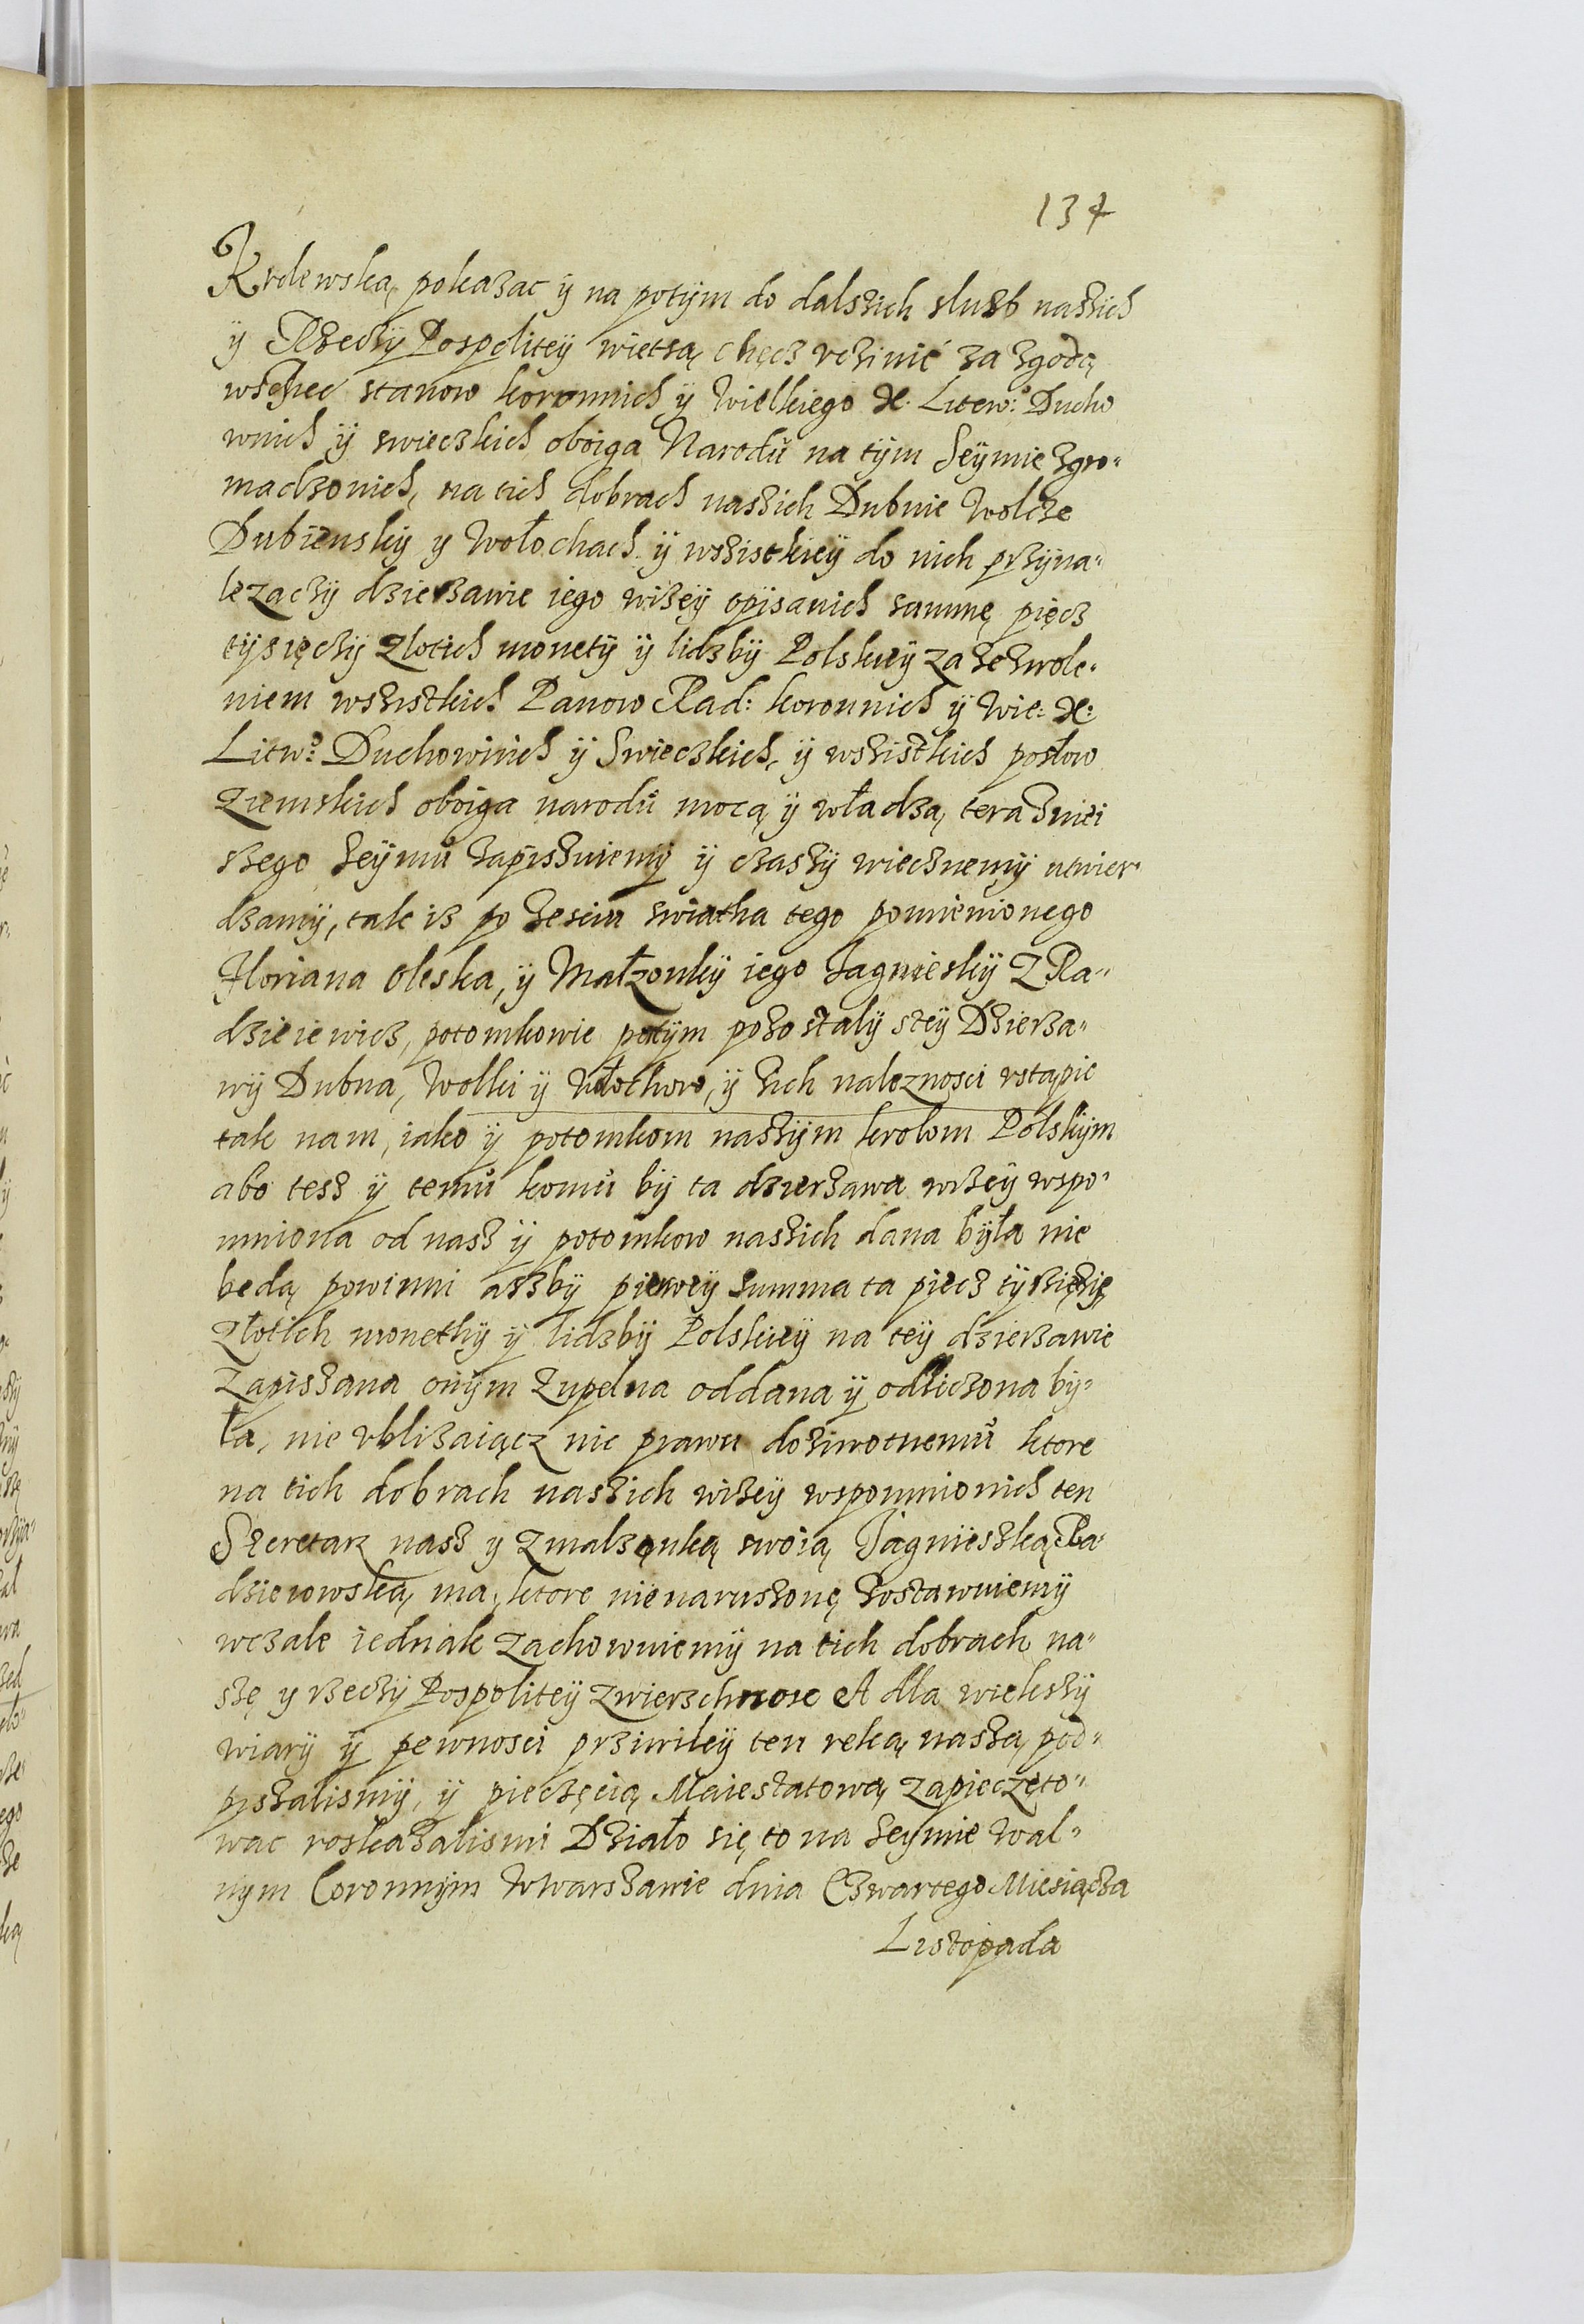 137
Krolewską pokazac ÿ na potÿm do dalszich sluzb naszich
ÿ Rzeczÿ Pospolitey wietsą chęcz vczinić za zgodą
wszhec stanow koronnich ÿ Wielkiego X. Litew: Ducho
wnich ÿ swieczkich oboiga Narodu na tÿm Seÿmie zgro-
madzonich, na tich dobrach naszich Dubnie Wolcze
Dubienskÿ y Wołochach ÿ wszistkieÿ do nich przÿna-
lezaczÿ dzierzawie iego wizeÿ opÿsanich summę pięcz
tÿsięczÿ zlotich monetÿ ÿ lidzbÿ Polskieÿ za zezwole-
niem wszistkich Panow Rad: koronnich ÿ Wie: X:
Litwo Duchowinich ÿ Swieczkich, ÿ wszistkich posłow
ziemskich oboiga narodu mocą ÿ władzą terazniei
szego Seÿmu zapisuiemÿ ÿ czasÿ wiecznemÿ utwier-
dzamÿ, tak iz po zesciu swiatha tego pomienionego
Floriana Oleska, ÿ Małzonkÿ iego Jagnieskÿ z Ra-
dzieiewicz, potomkowie potÿm pozostalÿ stey Dzierza-
wÿ Dubna, Wolki ÿ Włochow, ÿ zich naleznosci vstąpic
tak nam, iako ÿ potomkom naszÿm krolom Polskÿm
abo tesz ÿ temu komu bÿ ta dzierzawa wizeÿ wspo-
mniona od nasz ÿ potomkow naszich dana była nie
bedą powinni aszbÿ pierweÿ summa ta piecz tÿsięcÿ
złotich monethÿ ÿ lidzbÿ Polskieÿ na teÿ dzierzawie
zapiszana onÿm zupelna oddana ÿ odliczona bÿ-
ła, nie vblizaiącz nic prawu doziwotnemu ktore
na tich dobrach naszich wizeÿ wspomnionich ten
Szeretarz nasz y zmalzonką swoią Jagnieszką Ra-
dzieiowską ma, ktore nienaruszonę zostawuiemÿ
wczale iednak zachowuiemÿ na tich dobrach na-
szę y rzeczÿ Pospoliteÿ zwierzchnosc A dla wiekszÿ
wiarÿ ÿ pewnosci przÿwileÿ ten reką naszą pod-
pÿszalismÿ, ÿ pieczęcią Maiestatową zapieczęto-
wac roskazalismi Działo się to na Seÿmie Wal-
nym Coronnÿm w Warszawie dnia Czwartego Miesiącza
Listopada